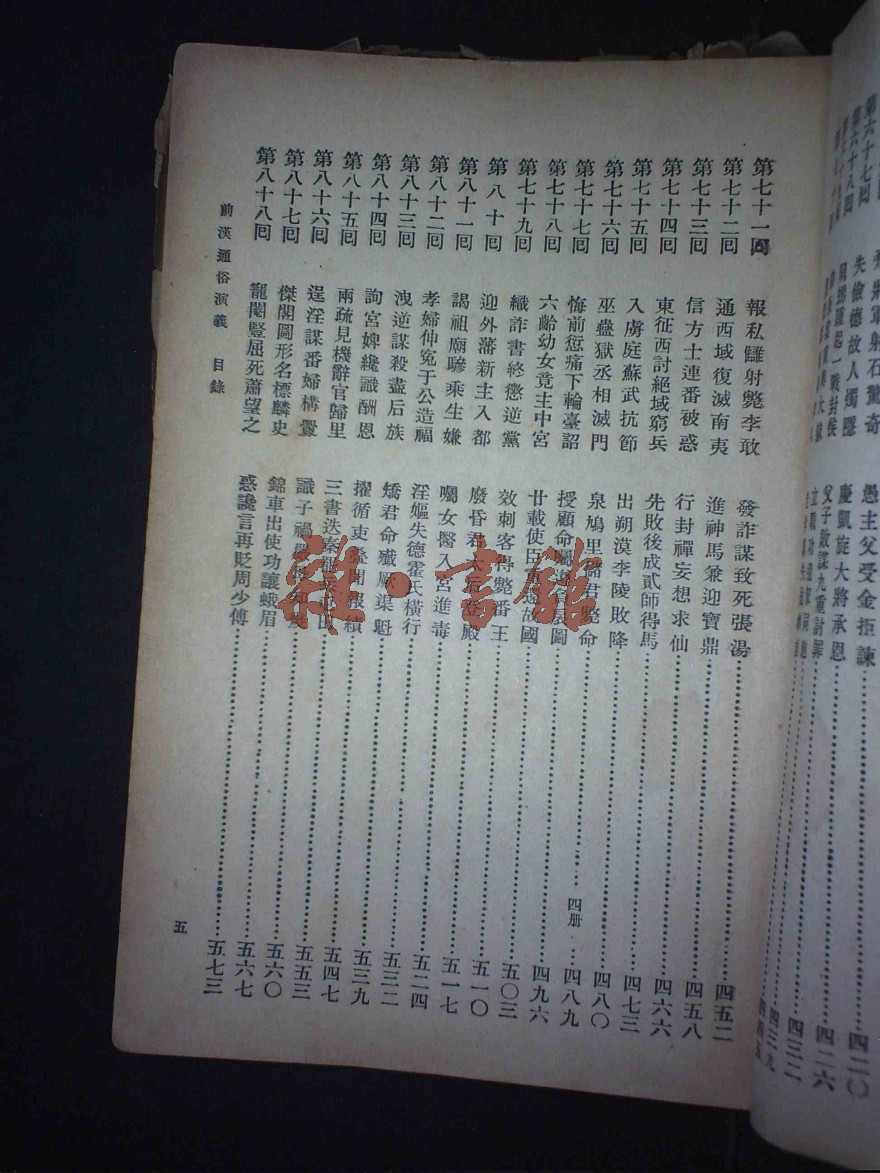 愚主父受金拒諫……四二〇
失儉德故人燭隱
慶凱旋大將承恩……四二六
父子敗謀九重討罪……四三二
第七十一回 報私讎射斃李敢 發詐謀致死張湯……四五二
第七十二回 通西域復滅南夷 進神馬兼迎寶鼎……四五八
第七十三回 信方士連番被惑 行封禪妄想求仙……四六六
第七十四回 東征西討絕域窮兵 先敗後成貳師得馬……四七三
第七十五回 入虜庭蘇武抗節 出朔漠李陵敗降……四八〇
第七十六回 巫蠱獄丞相滅門 泉鳩里儲君斃命……四八九
第七十七回 悔前愆痛下輪臺詔 授顧命圖 四册……四九六
第七十八回 六齡幼女竟主中宮 廿載使臣故國……五〇三
第七十九回 織詐書終懲逆黨 效刺客得斃番王……五一〇
第八十回 迎外藩新主入都 廢昏君太后登殿……五一七
第八十一回 謁祖廟驂乘生嫌 囑女醫入宮進毒……五二四
第八十二回 孝婦伸冤于公造福 淫嫗失德霍氏橫行……五三二
第八十三回 洩逆謀殺盡后族 矯君命殲厥渠魁……五三九
第八十四回 詢宮婢纔識酬恩 擢循吏報績……五四七
第八十五回 兩疏見機辭官歸里 三書迭奏……五五三
第八十六回 逞淫謀番婦構釁 識子禍嚴母……五六〇
第八十七回 傑閣圖形名標麟史 錦車出使功讓蛾眉……五六七
第八十八回 寵閹豎屈死蕭望之 惑讒言再貶周少傅……五七三
前漢通俗演義 目錄
五
雜·書館